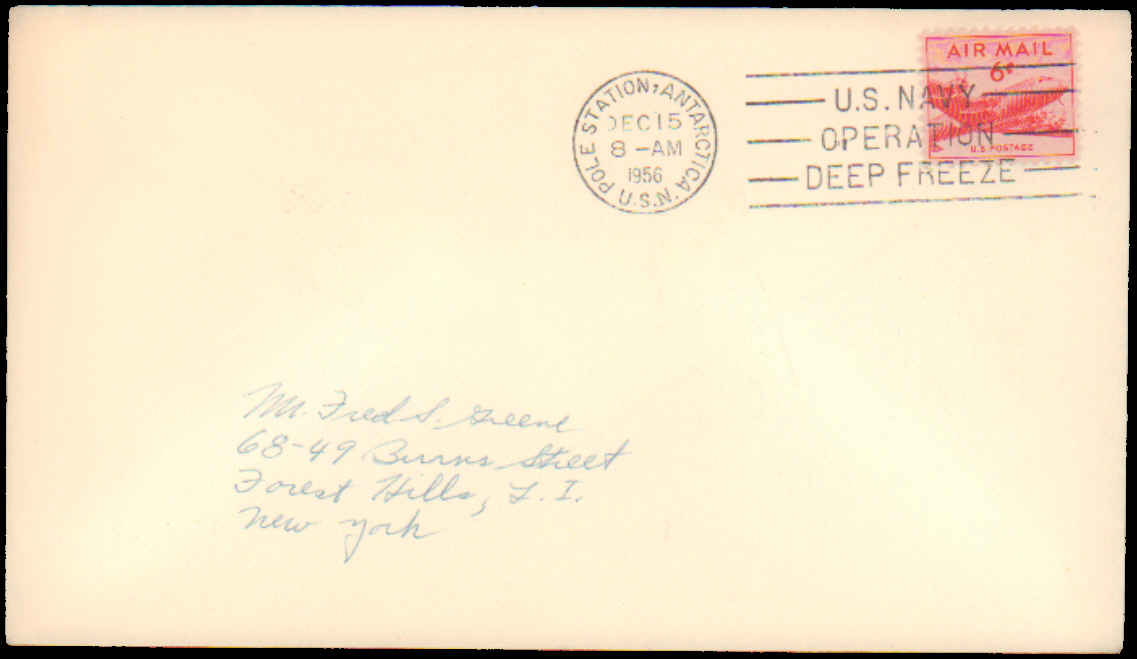 AIR MAIL
6¢
U.S. POSTAGE
POLE STATION, ANTARCTICA
DEC 15
8 -AM
1956
U.S.N.
U.S. NAVY
OPERATION
DEEP FREEZE
Mr. Fred S. Greene
68-49 Burns Street
Forest Hills, L. I.
New York